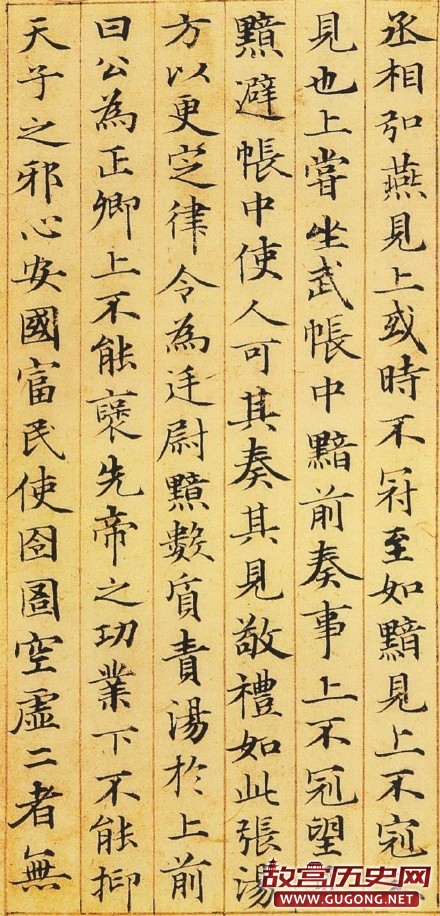 丞相弘燕見上或時不冠至如黯見上不冠
見也上嘗坐武帳中黯前奏事上不冠望
黯避帳中使人可其奏其見敬禮如此張湯
方以更定律令為廷尉黯數質責湯於上前
曰公為正卿上不能襃先帝之功業下不能抑
天子之邪心安國富民使囹圄空虛二者無
故宫历史网
WWW.GUGONG.NET